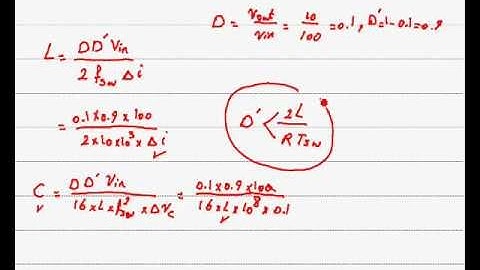 D = Vout/Vin = 10/100 = 0.1, D' = 1 - 0.1 = 0.9
L = DD'Vin / 2 fsw Δi
= 0.1 x 0.9 x 100 / 2 x 10 x 10³ x Δi
D' < 2L / R Tsw
C = DD' Vin / 16 x L x fsw² x ΔVc = 0.1 x 0.9 x 100 / 16 x L x 10⁸ x 0.1